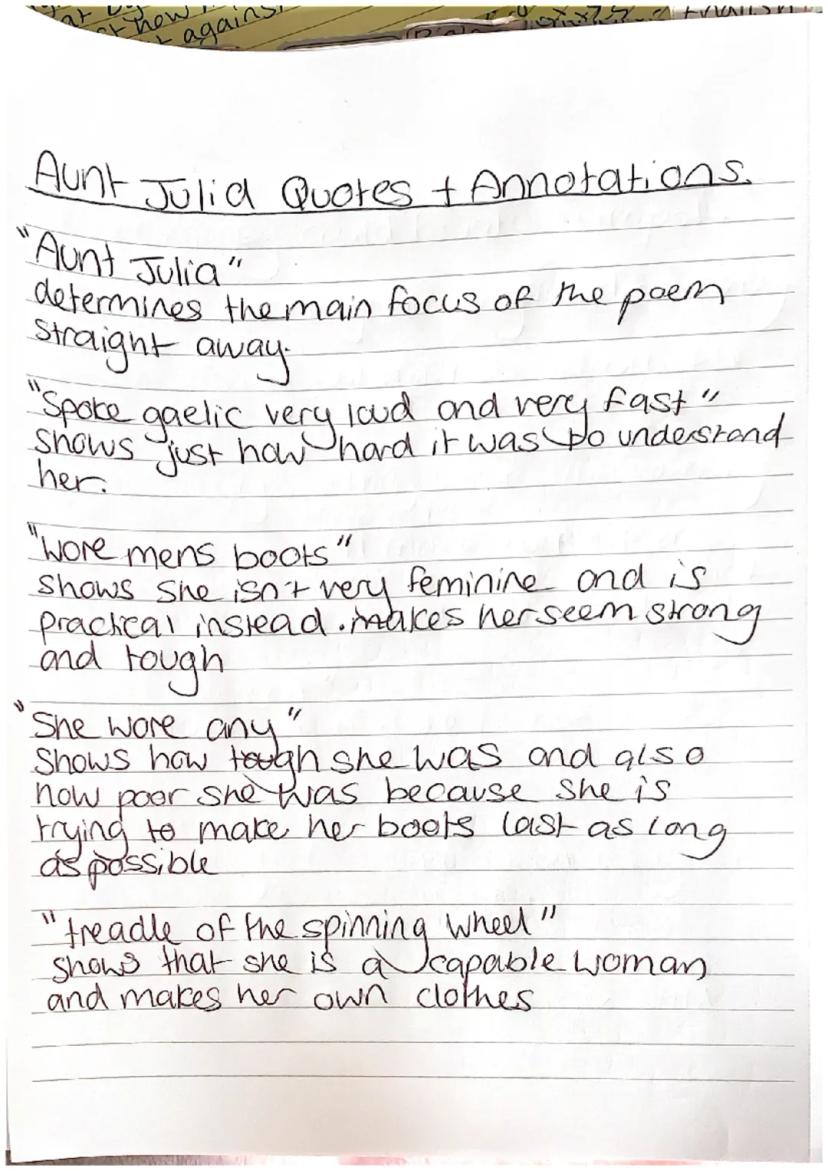 new
against
Aunt Julia Quotes + Annotations.
"Aunt Julia"
determines the main focus of the poem
straight away.
"Spoke gaelic very loud and very fast"
shows just how hard it was to understand
her.
"wore mens boots"
shows she isn't very feminine and is
practical instead. makes her seem strong
and tough
"She wore any"
Shows how tough she was and also
how poor she was because she is
trying to make her boots last as long
as possible
"treadle of the spinning wheel"
shows that she is a capable woman
and makes her own clothes